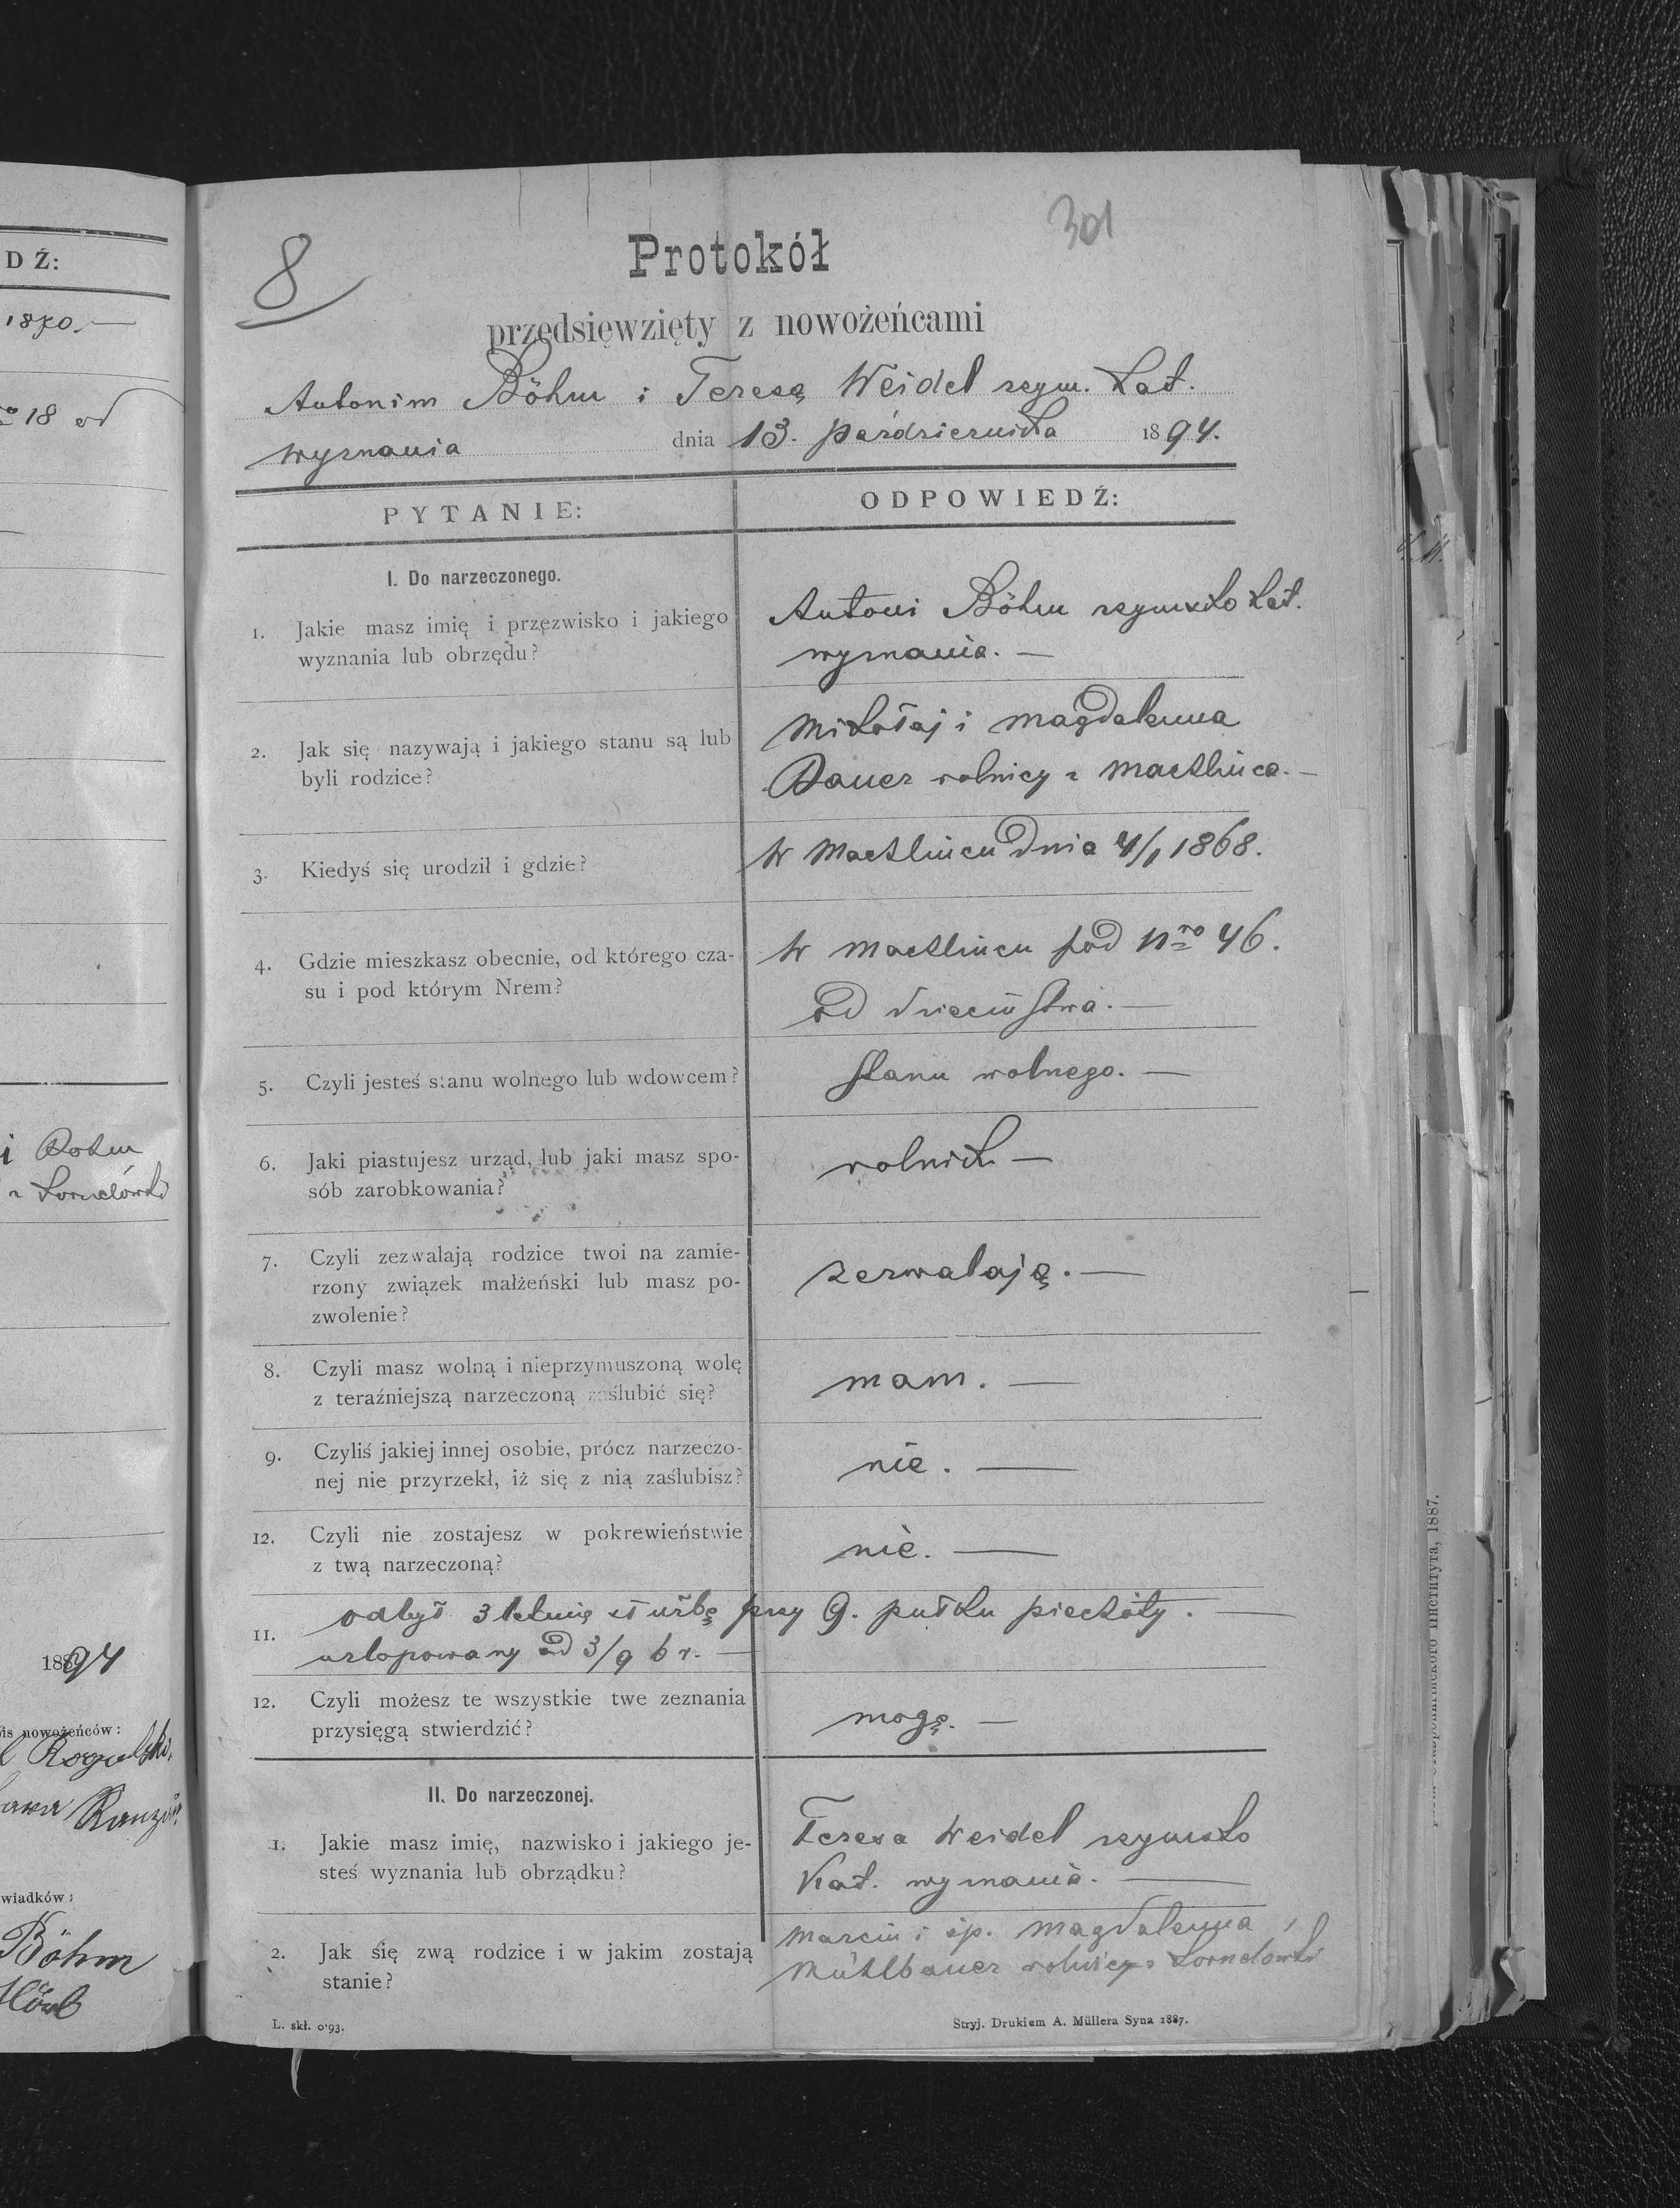 8
301
Protokół
przedsięwzięty z nowożeńcami
Antonim Böhm i Teresą Weidel rzym. kat.
wyznania dnia 13. października 1894.
PYTANIE:
ODPOWIEDŹ:
I. Do narzeczonego.
1. Jakie masz imię i przęzwisko i jakiego
wyznania lub obrzędu?
Antoni Böhm rzymsko kat.
wyznania. —
2. Jak się nazywają i jakiego stanu są lub
byli rodzice?
Mikołaj i Magdalenna
Bauer rolnicy z Machlinca. —
3. Kiedyś się urodził i gdzie?
W Machlińcu dnia 4/1 1868.
4. Gdzie mieszkasz obecnie, od którego cza-
su i pod którym Nrem?
W Machlińcu pod Nro 46.
od dzieciństwa. —
5. Czyli jesteś stanu wolnego lub wdowcem?
stanu wolnego. —
6. Jaki piastujesz urząd, lub jaki masz spo-
sób zarobkowania?
rolnik —
7. Czyli zezwalają rodzice twoi na zamie-
rzony związek małżeński lub masz po-
zwolenie?
zezwalają. —
8. Czyli masz wolną i nieprzymuszoną wolę
z teraźniejszą narzeczoną zaślubić się?
mam. —
9. Czyliś jakiej innej osobie, prócz narzeczo-
nej nie przyrzekł, iż się z nią zaślubisz?
nie. —
12. Czyli nie zostajesz w pokrewieństwie
z twą narzeczoną?
nie. —
11. odbył 3 letnią służbę przy 9. pułku piechoty. —
urlopowany od 3/9 b r. —
12. Czyli możesz te wszystkie twe zeznania
przysięgą stwierdzić?
mogę. —
II. Do narzeczonej.
1. Jakie masz imię, nazwisko i jakiego je-
steś wyznania lub obrządku?
Teresa Weidel rzymsko
kat. wyznania. —
2. Jak się zwą rodzice i w jakim zostają
stanie?
Marcin i śp. Magdalenna
Mühlbauer rolnicy z Kornelówki
L. skł. 0·93.
Stryj. Drukiem A. Müllera Syna 1887.
DŹ:
1870. —
18 od
i Bohm
z Kornelówki
1894
is nowożeńców:
wiadków:
Böhm
1887.